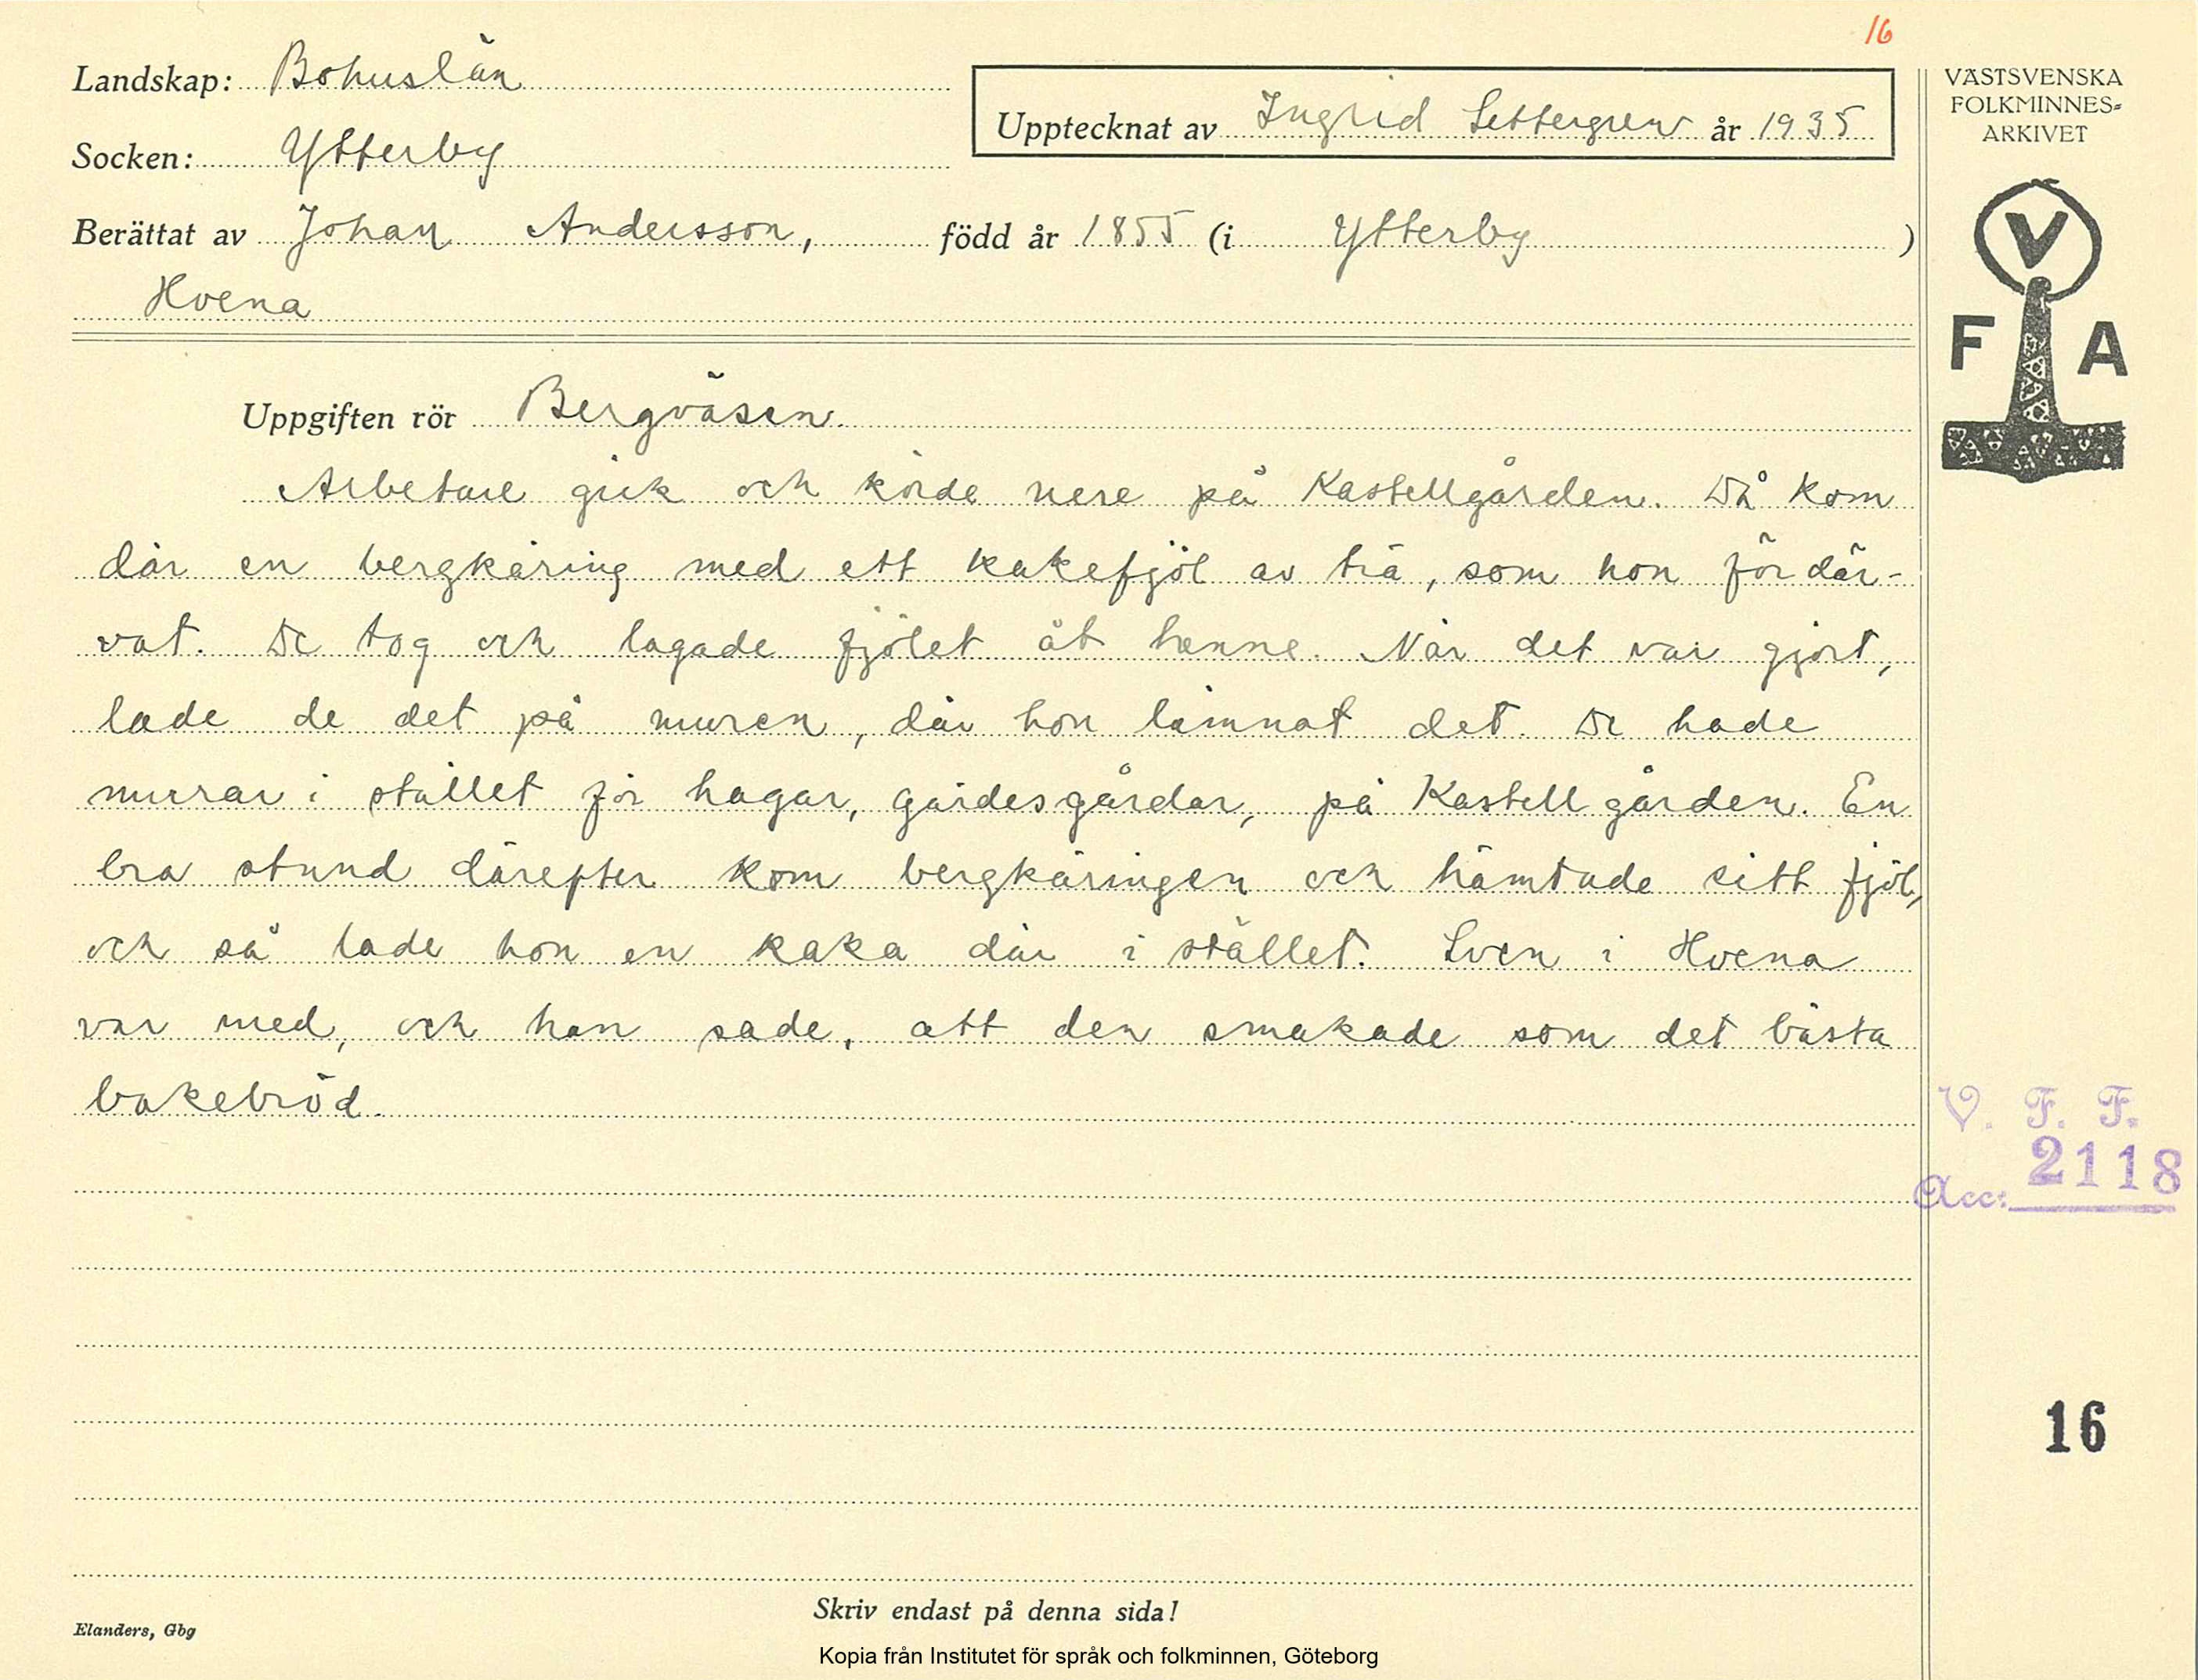 16
Landskap: Bohuslän
Upptecknat av Ingrid Settergren år 1935
Socken: Ytterby
Berättat av Johan Andersson, född år 1855 (i Ytterby )
Hvena
VÄSTSVENSKA
FOLKMINNES=
ARKIVET
V
F A
Uppgiften rör Bergväsen.
Arbetare gick och körde nere på Kastellgården. Då kom
där en bergkäring med ett kakefjöl av trä, som hon fördär-
vat. De tog och lagade fjölet åt henne. När det var gjort,
lade de det på muren, där hon lämnat det. De hade
murar i stället för hagar, gärdesgårdar, på Kastellgården. En
bra stund därefter kom bergkäringen och hämtade sitt fjöl,
och så lade hon en kaka där i stället. Sven i Hvena
var med, och han sade, att den smakade som det bästa
bakebröd.
V. F. F.
Acc: 2118
16
Skriv endast på denna sida!
Elanders, Gbg
Kopia från Institutet för språk och folkminnen, Göteborg